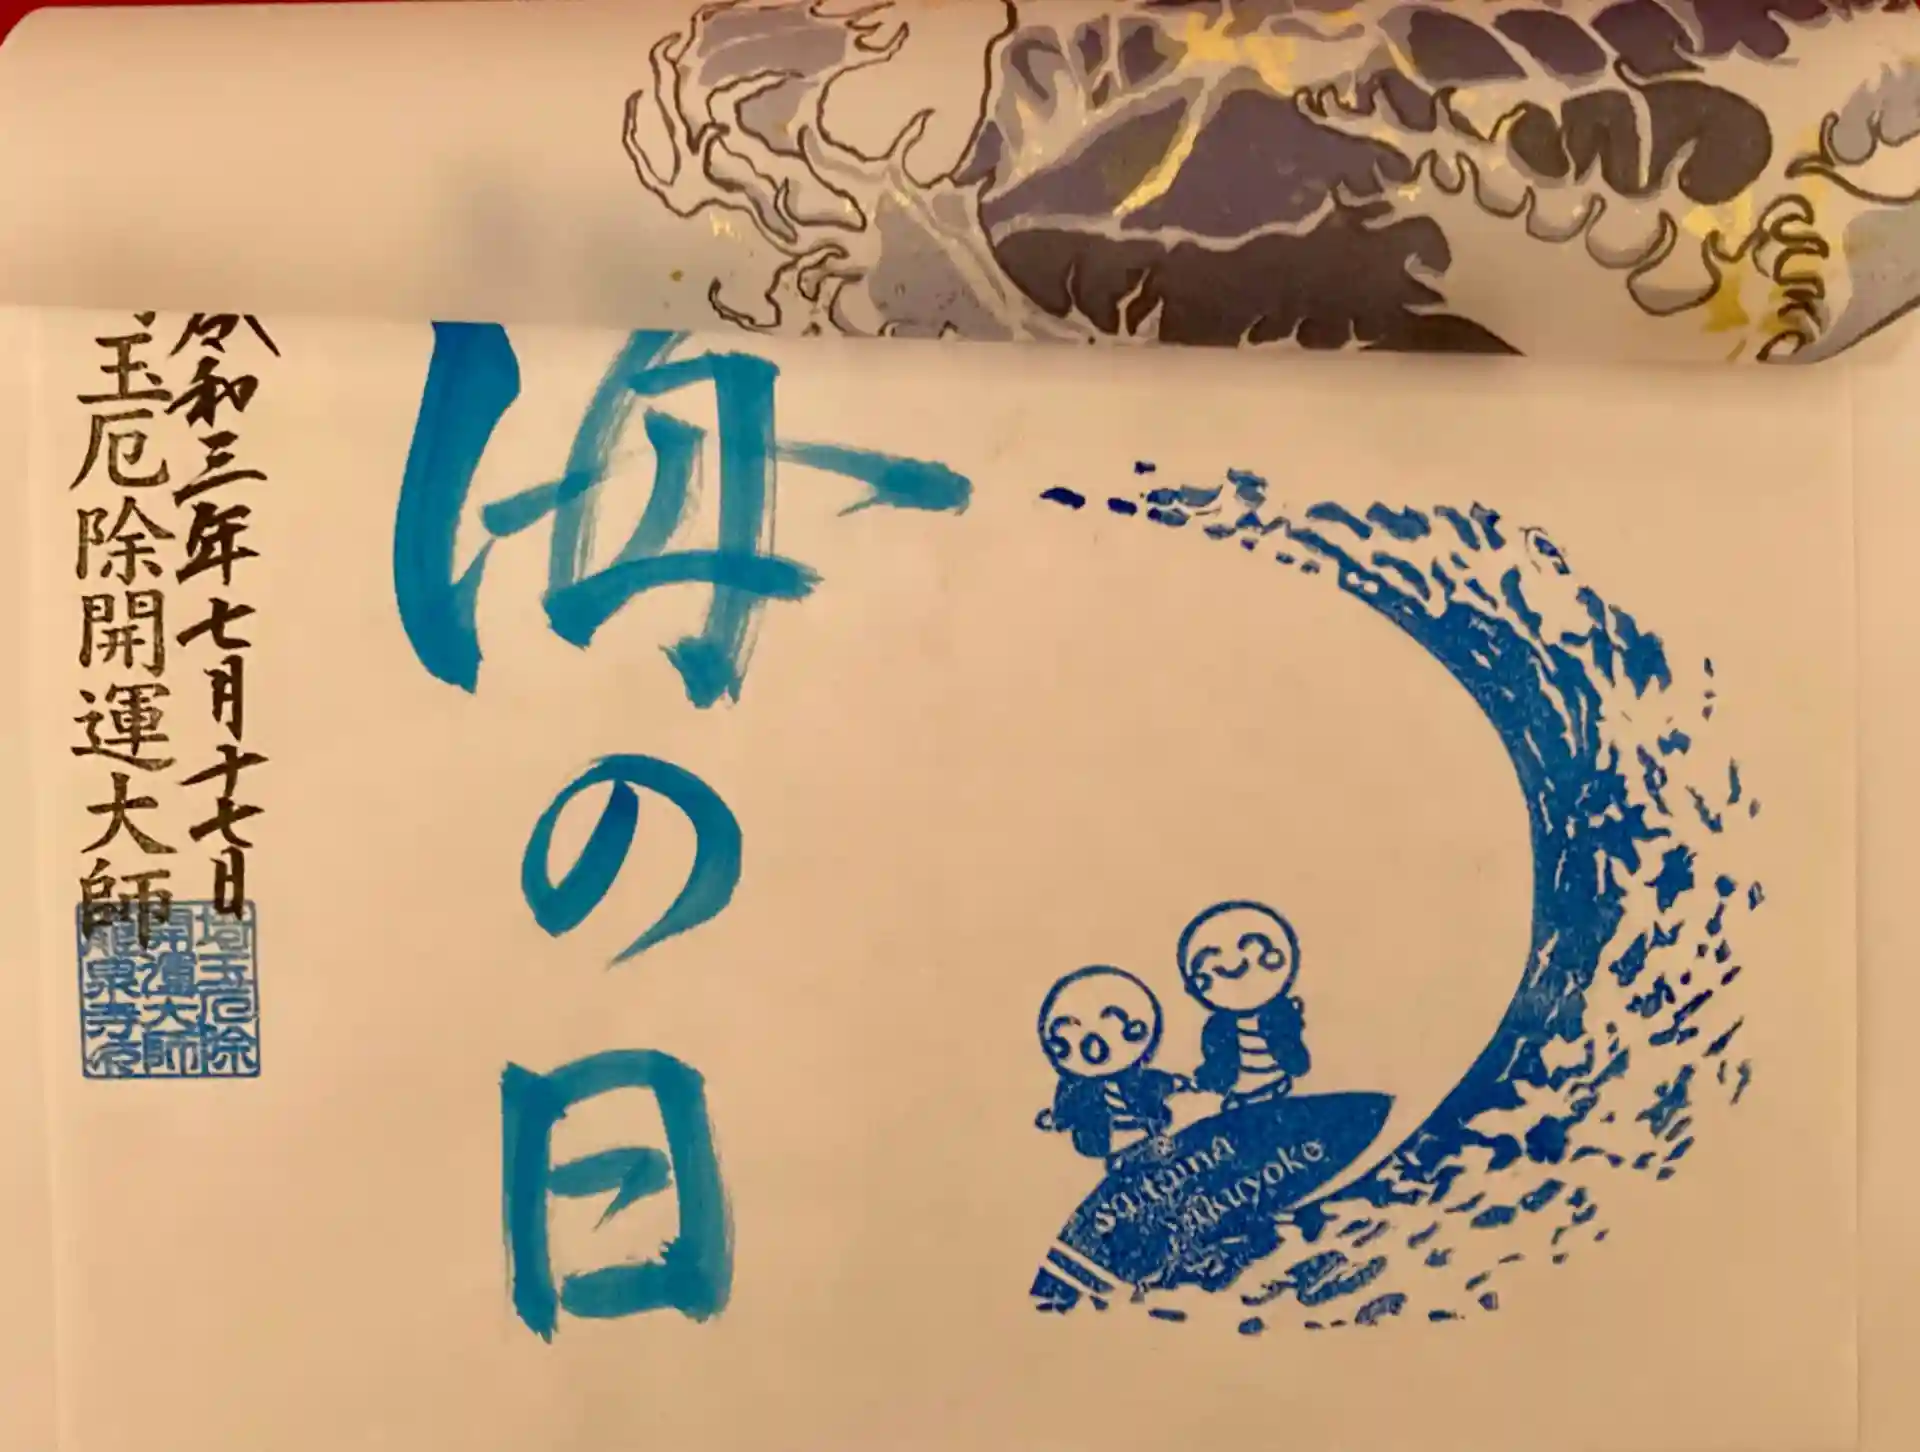 海の日
令和三年七月十七日
玉厄除開運大師
埼玉厄除
開運大師
龍泉寺
saitama
yakuyoke